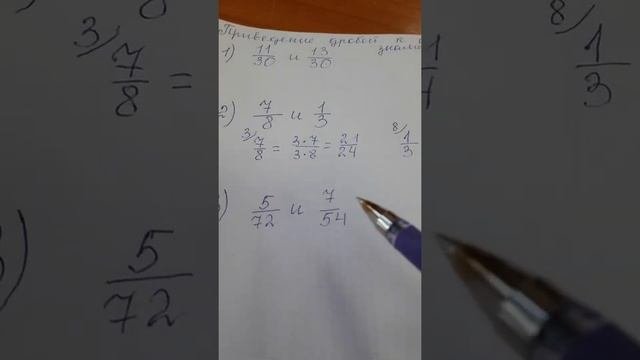 Приведение дробей к
знаме
1) 11/30 и 13/30
2) 7/8 и 1/3
3/ 7/8 = 3•7/3•8 = 21/24 8/ 1/3
3) 5/72 и 7/54